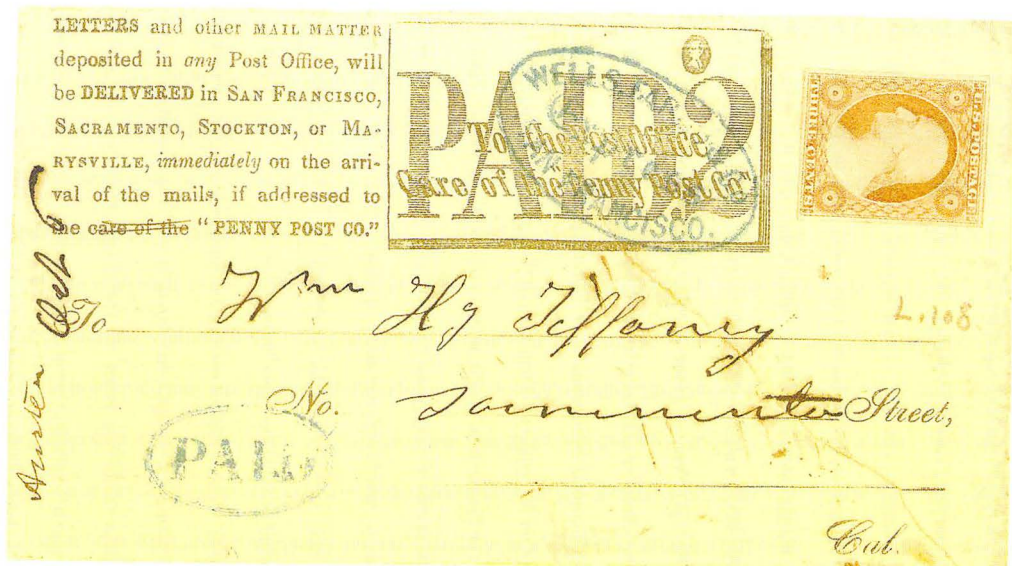 LETTERS and other MAIL MATTER
deposited in any Post Office, will
be DELIVERED in SAN FRANCISCO,
SACRAMENTO, STOCKTON, or MA-
RYSVILLE, immediately on the arri-
val of the mails, if addressed to
the care of the "PENNY POST CO."
PAID 2
To the Post Office
Care of the "Penny Post Co"
WELLS, FARGO
FRANCISCO.
U.S. POSTAGE
THREE CENTS
To Wm Hy Tiffaney
L.108
No. Sacramento Street,
PAID
Cal.
Austin